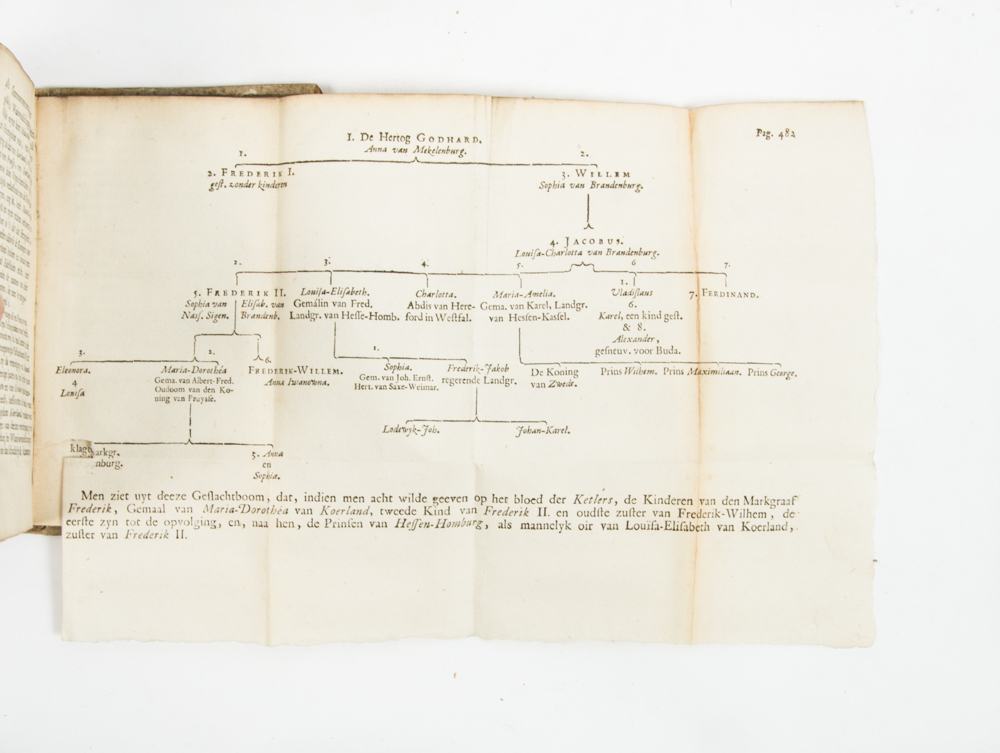 Pag. 482
1. De Hertog GODHARD.
Anna van Mekelenburg.
1.
2.
2. FREDERIK I.
gest. zonder kinderen
3. WILLEM
Sophia van Brandenburg.
4. JACOBUS.
Louisa-Charlotta van Brandenburg.
2.
3.
4.
5.
6
7.
5. FREDERIK II.
Sophia van
Nass. Sigen.
Elisab. van
Brandenb.
Louisa-Elisabeth.
Gemálin van Fred.
Landgr. van Hesse-Homb.
Charlotta.
Abdis van Here-
ford in Westfal.
Maria-Amelia.
Gema. van Karel, Landgr.
van Hessen-Kassel.
1.
Vladislaus
6.
Karel, een kind gest.
& 8.
Alexander,
gesneuv. voor Buda.
7. FERDINAND.
3.
Eleonora.
4
Louisa
2.
Maria-Dorothéa
Gema. van Albert-Fred.
Oudoom van den Ko-
ning van Pruysse.
6.
FREDERIK-WILLEM.
Anna Iwanowna.
1.
Sophia.
Gem. van Joh. Ernst.
Hert. van Saxe-Weimar.
Frederik-Jakob
regerende Landgr.
De Koning
van Zwede.
Prins Wilhem. Prins Maximiliaan. Prins George.
Lodewyk-Joh.
Johan-Karel.
arkgr.
nburg.
5. Anna
en
Sophia.
Men ziet uyt deeze Geslachtboom, dat, indien men acht wilde geeven op het bloed der Ketlers, de Kinderen van den Markgraaf
Frederik, Gemaal van Maria-Dorothéa van Koerland, tweede Kind van Frederik II. en oudste zuster van Frederik-Wilhem, de
eerste zyn tot de opvolging, en, naa hen, de Prinsen van Hessen-Homburg, als mannelyk oir van Louïsa-Elisabeth van Koerland,
zuster van Frederik II.